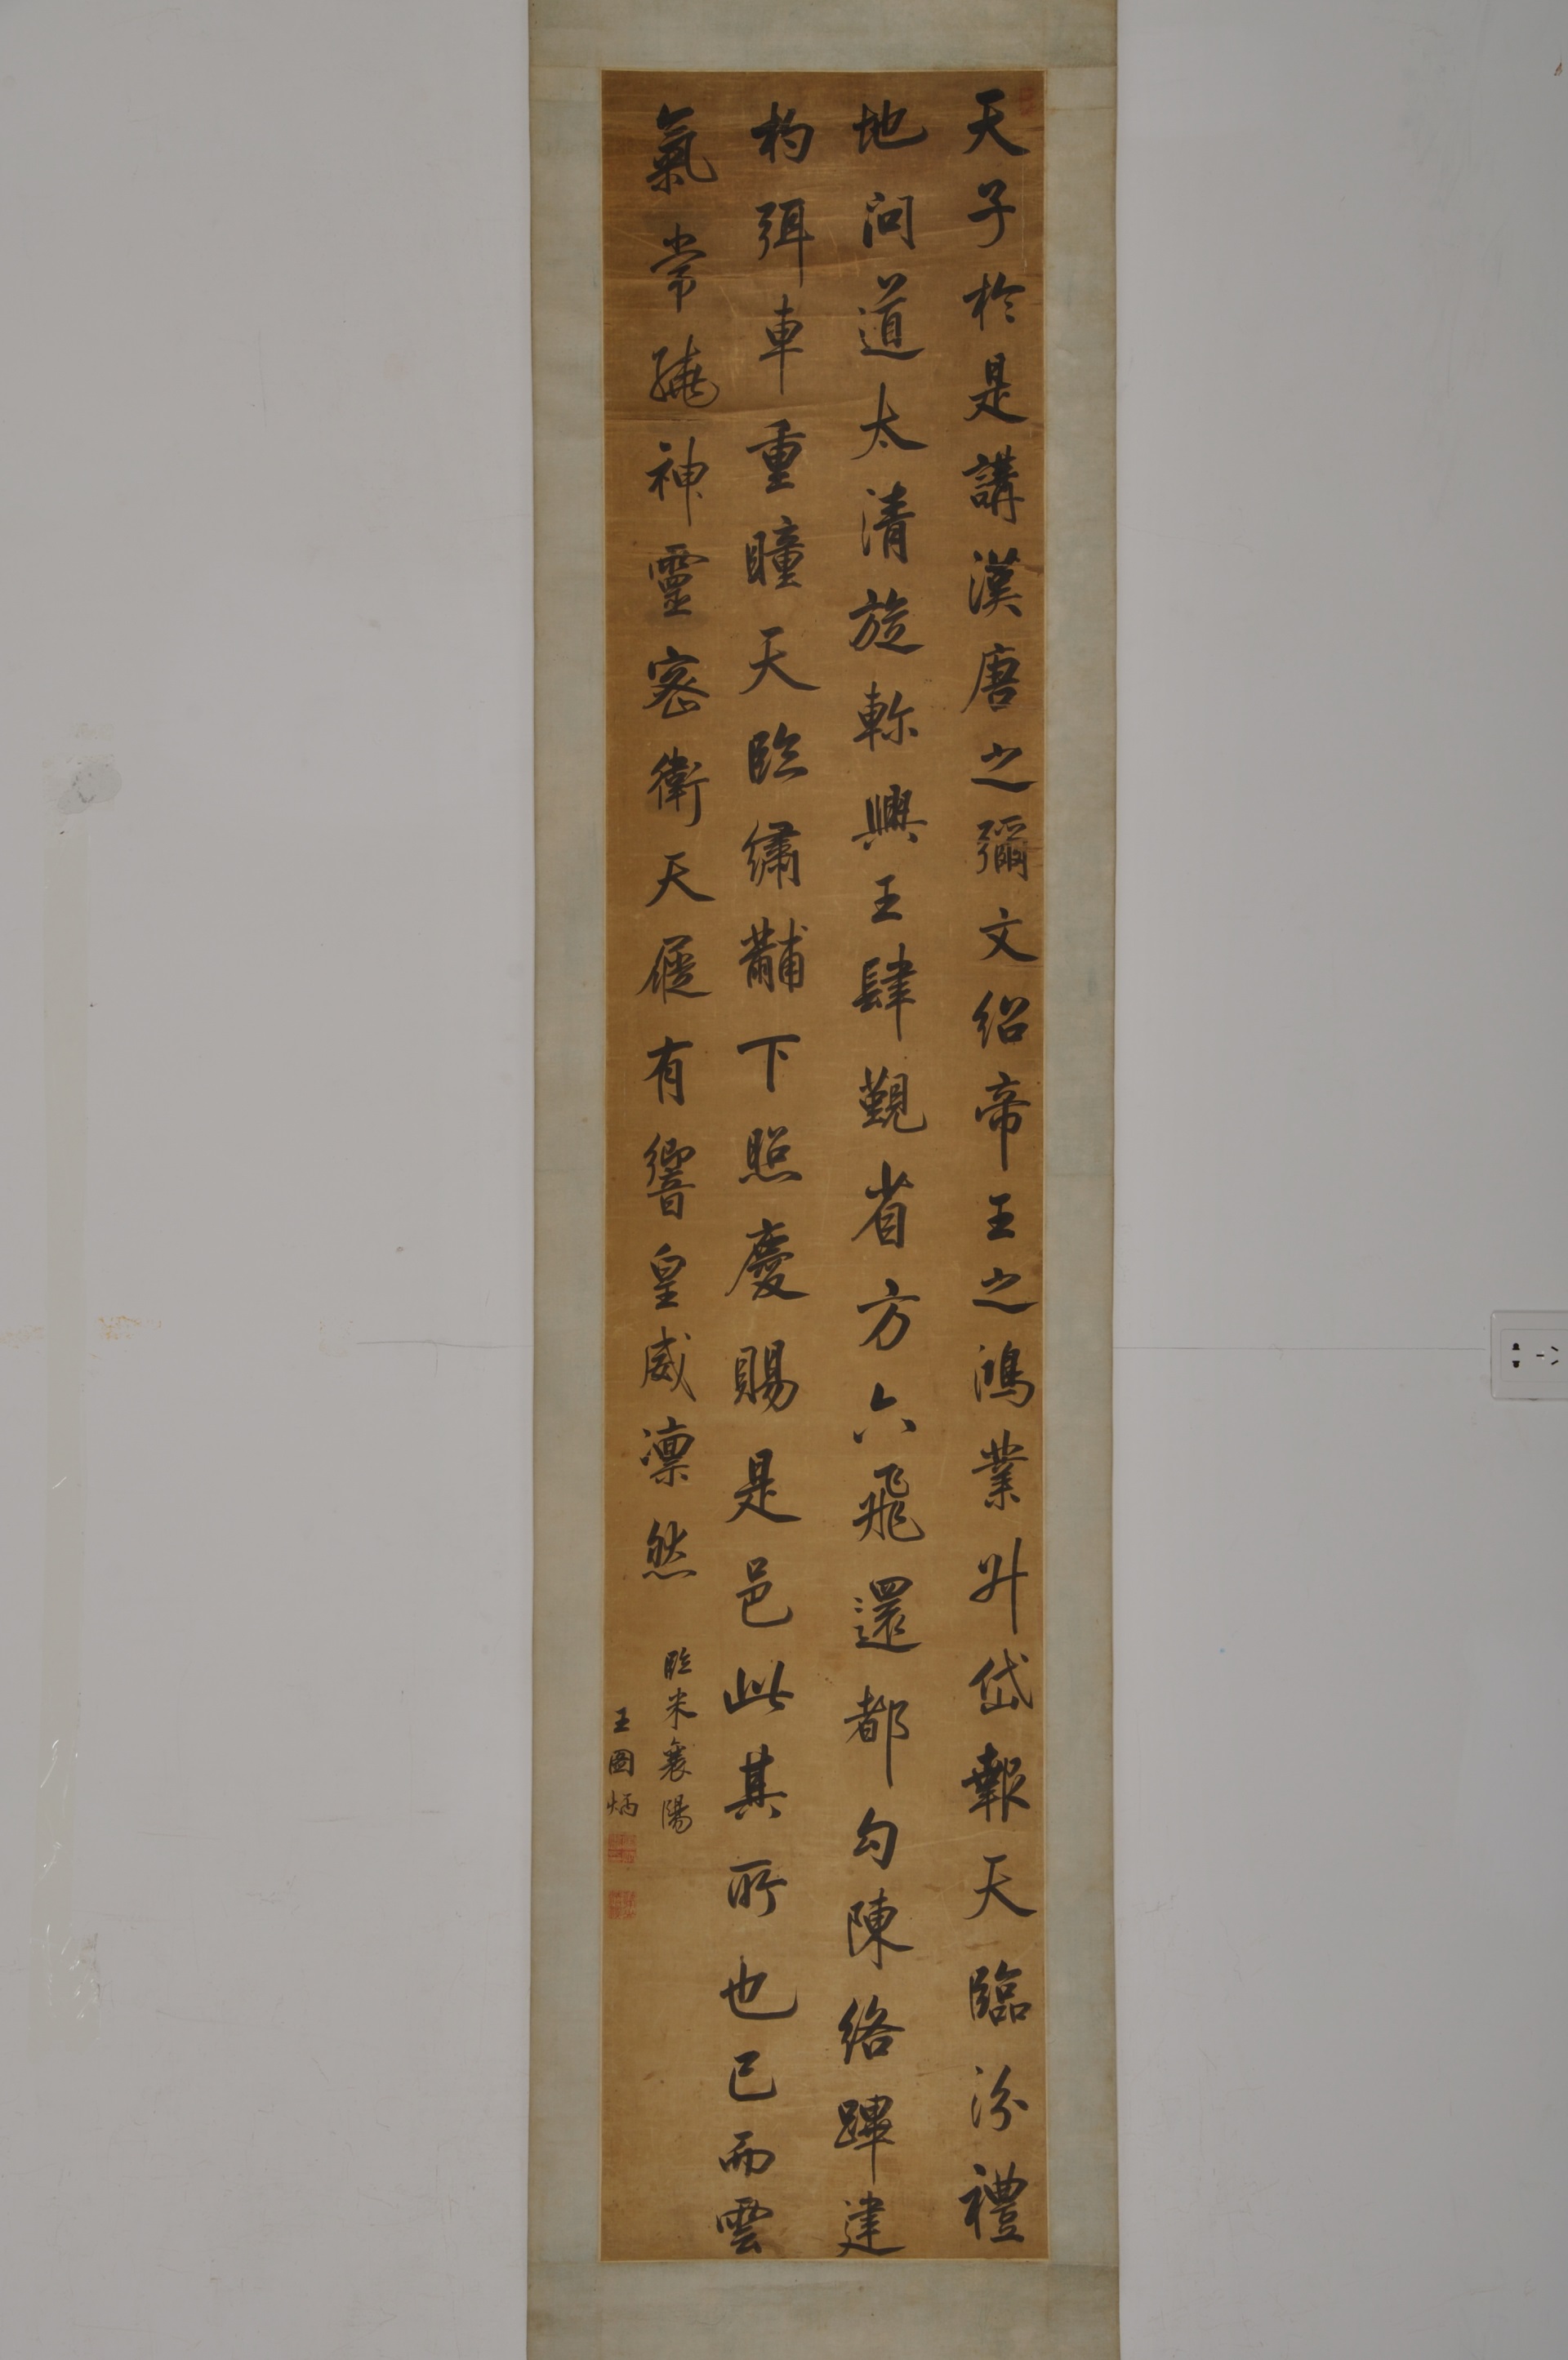 天子於是講漢唐之彌文紹帝王之鴻業升岱報天臨汾禮
地问道太清旋軫興王肆覲省方六飛還都勾陳絡蹕建
杓弭車重瞳天臨繡黼下照慶賜是邑此其所也已而雲
氣常繞神靈密衛天蹤有響皇威凛然
臨米襄陽
王圖炳